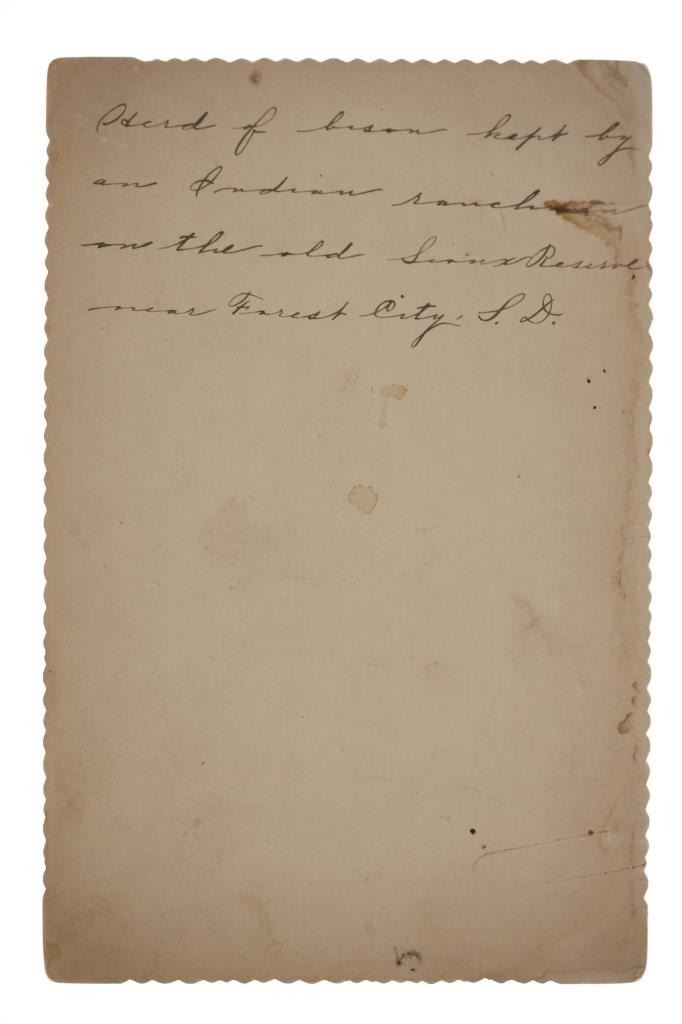 Herd of bison kept by
an Indian ranchman
on the old Sioux Reserve,
near Forest City, S. D.